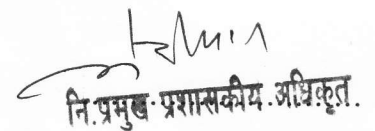 नि.प्रमुख प्रशासकीय अधिकृत.